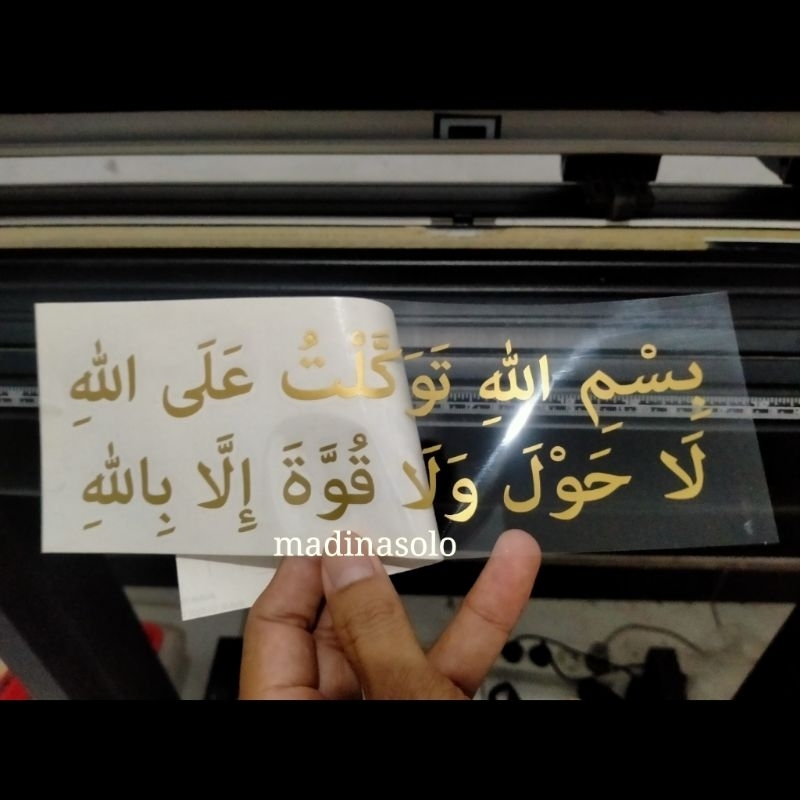 بِسْمِ اللهِ تَوَكَّلْتُ عَلَى اللهِ
لَا حَوْلَ وَلَا قُوَّةَ إِلَّا بِاللهِ
madinasolo